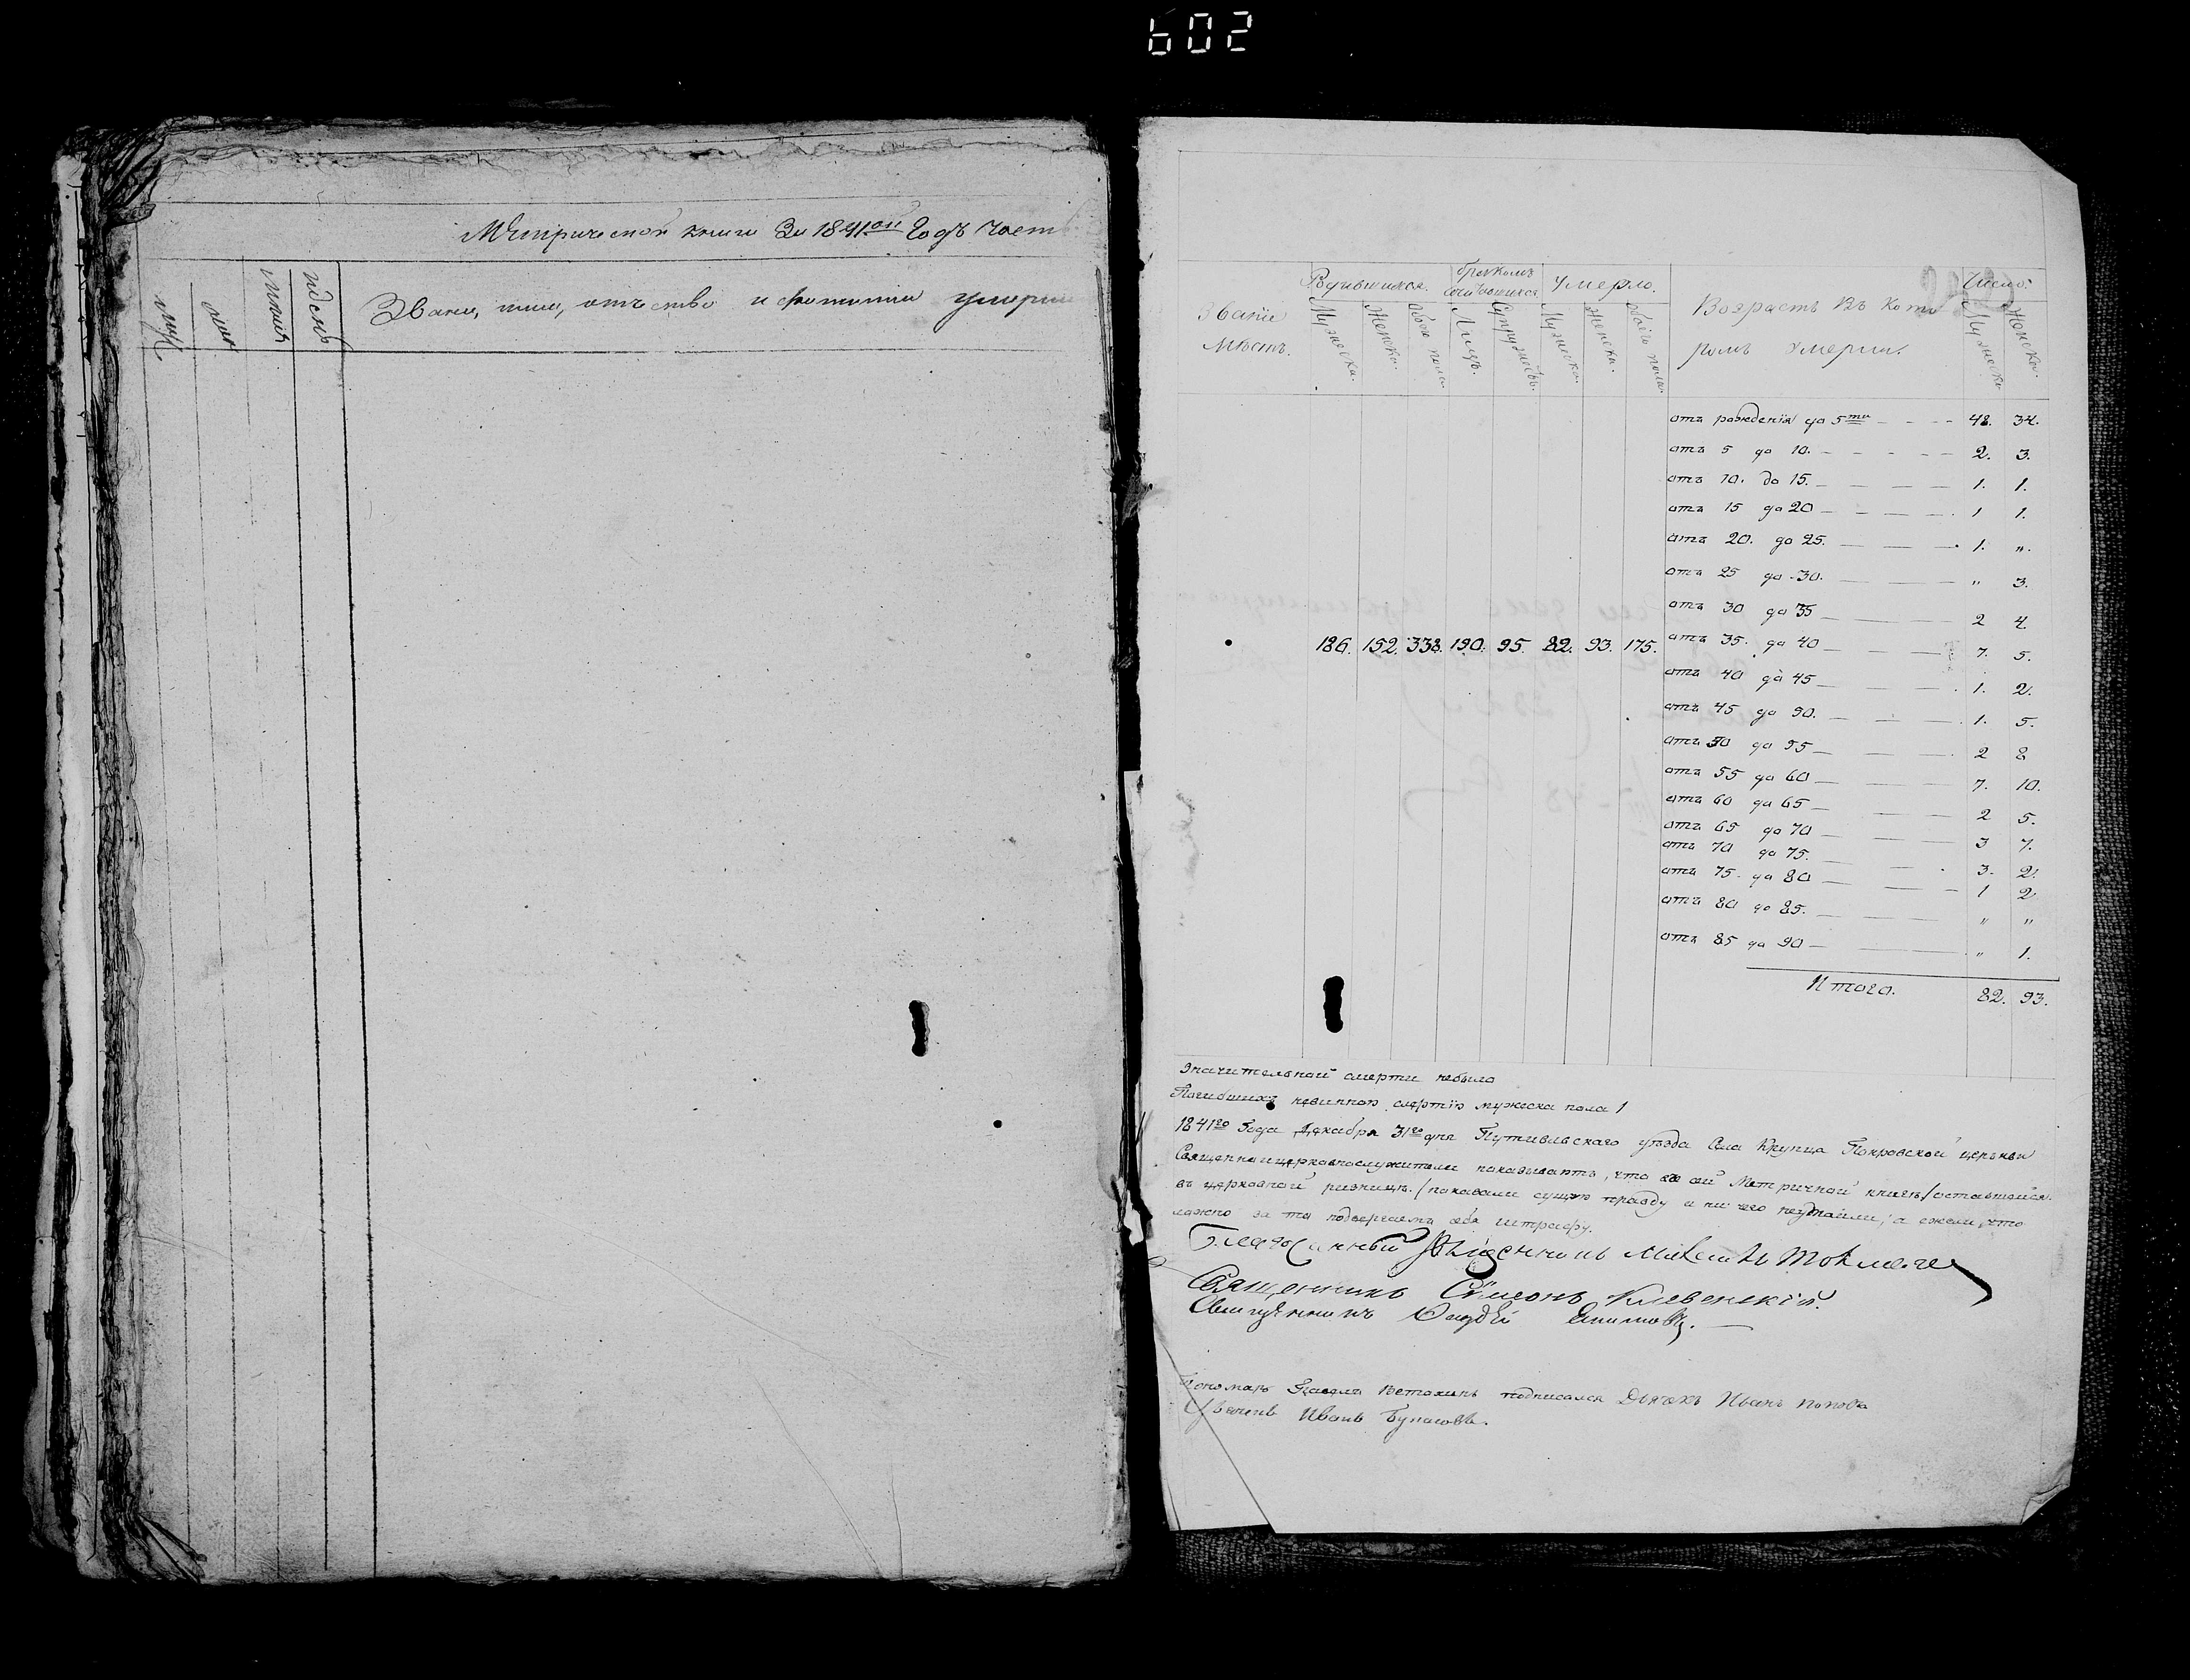 602
Метрической книги За 1841ой Годъ Част
Званіе, имя, отчество и фамилія умерш
Званіе Мѣстъ.
Родившихся.
Мужеска. Женска. Обоего пола.
Бракомъ сочетавшихся
Лицъ. Супружествъ.
Умерло.
Мужеска. Женска. Обоего пола.
Возрастъ въ кото
ромъ умерли.
Число.
Мужеска Женска.
отъ рожденія до 5ти 48. 34.
отъ 5 до 10. 2. 3.
отъ 10. до 15. 1. 1.
отъ 15 до 20 1 1.
отъ 20. до 25. 1. ".
отъ 25 до 30. " 3.
отъ 30 до 35 2 4.
186. 152. 338. 190. 95. 82. 93. 175.
отъ 35. до 40 7. 5.
отъ 40 до 45 1. 2.
отъ 45 до 50. 1. 5.
отъ 50 до 55 2 8
отъ 55 до 60 7. 10.
отъ 60 до 65 2 5.
отъ 65 до 70 3 7.
отъ 70 до 75. 3. 2.
отъ 75. до 80 1 2
отъ 80 до 85. " "
отъ 85 до 90 " 1.
Итого. 82. 93.
Значительной смерти небыло
Погибшихъ невинною смертію мужеска пола 1
1841го Года Декабря 31го дня Путивльскаго уѣзда Села Крупца Покровской церкви
Священноицерковнослужители показываютъ, что въ сей Метричной книгѣ /оставшейся
въ церковной ризницѣ./ показали сущую правду и ни чего неутаили; а ежели, что
ложно за то подвергаемъ себя штрафу.
Благочинный Священникъ
Священникъ Симеонъ Клевенскій.
Священникъ
Пономарь Павелъ Ветохинъ подписался Дьячекъ Иванъ Поповъ
Иванъ